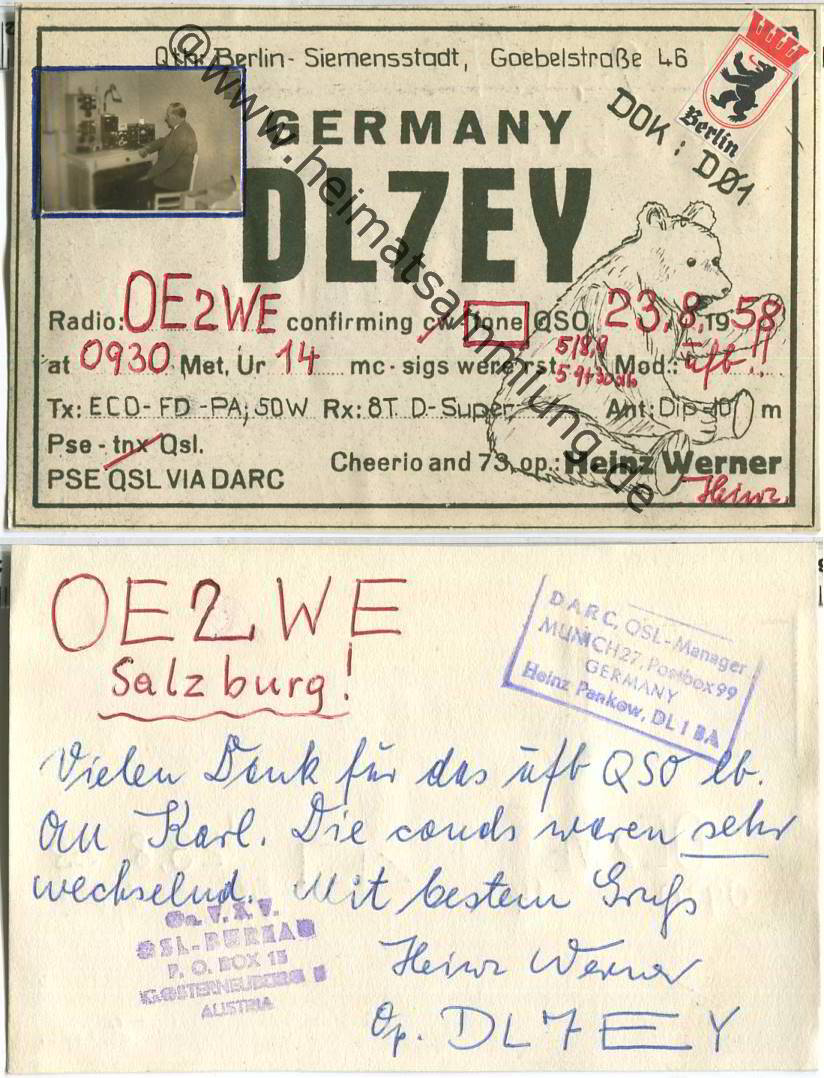 Qth: Berlin-Siemensstadt, Goebelstraße 46
GERMANY
DOK: DØ1
Berlin
DL7EY
Radio: OE2WE confirming cw-fone QSO 23.8.1958
at 0930 Met, Ur 14 mc - sigs were rst Mod.: ufb!!
Tx: ECO-FD-PA; 50W Rx: 8T. D-Super Ant: Dip 10 m
Pse - tnx Qsl.
Cheerio and 73, op.: Heinz Werner
PSE QSL VIA DARC
Heinz.
@www.heimatsammlung.de
OE2WE
Salzburg!
DARC, QSL-Manager
MUNICH 27, Postbox 99
GERMANY
Heinz Pankow, DL 1 BA
Vielen Dank für das ufb QSO lb.
OM Karl. Die conds waren sehr
wechselnd. Mit bestem Gruß
Oe. V. S. V.
QSL-BUREAU
P. O. BOX 15
KLOSTERNEUBURG
AUSTRIA
Heinz Werner
Op. DL7EY